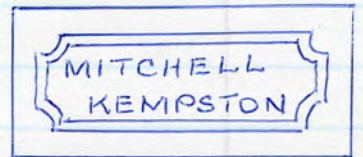 MITCHELL
KEMPSTON